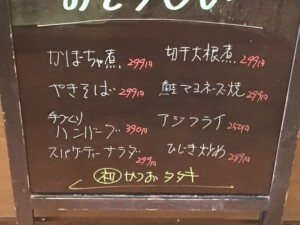 おとうしい
かぼちゃ煮 299円 切干大根煮 299円
やきそば 299円 鮭マヨネーズ焼 299円
手づくり
ハンバーグ 390円 アジフライ 250円
スパゲティーサラダ 299円 ひじき炒め 289円
初 かつおタタキ